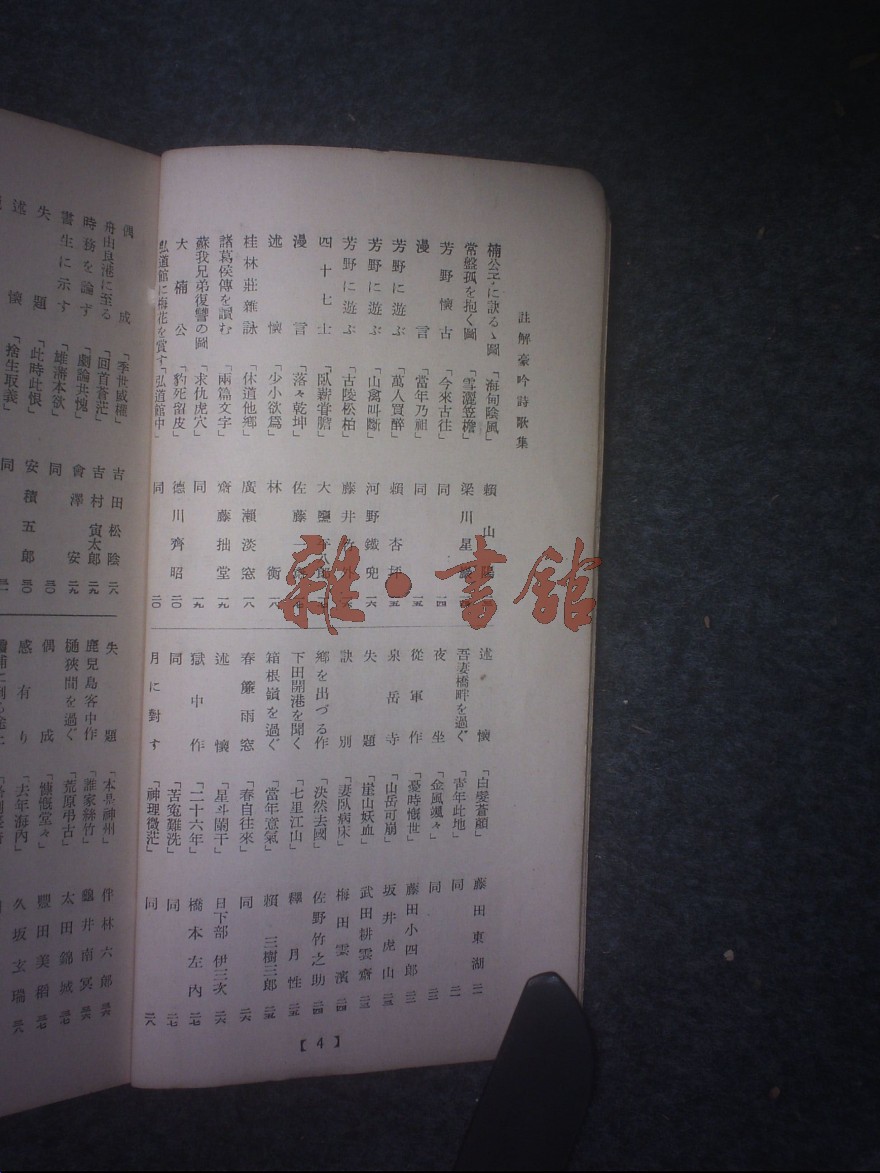 註解豪吟詩歌集
楠公子に訣るゝ圖 「海甸陰風」 賴山陽
常盤孤を抱く圖 「雪灑笠檐」 梁川星
芳野懷古 「今來古往」 同 一四
漫言 「當年乃祖」 同 一五
芳野に遊ぶ 「萬人買醉」 賴杏坪
芳野に遊ぶ 「山禽叫斷」 河野鐵兜 一六
芳野に遊ぶ 「古陵松柏」 藤井
四十七士 「臥薪甞膽」 大鹽
漫言 「落々乾坤」 佐藤一
述懷 「少小欲爲」 林衡 一八
桂林莊雜詠 「休道他鄉」 廣瀨淡窓 一八
諸葛侯傳を讀む 「兩篇文字」 齋藤拙堂 一九
蘇我兄弟復讐の圖 「求仇虎穴」 同 一九
大楠公 「豹死留皮」 德川齊昭 二〇
弘道館に梅花を賞す 「弘道館中」 同 二〇
述懷 「白髮蒼顏」 藤田東湖 二一
吾妻橋畔を過ぐ 「靑年此地」 同 二一
夜坐 「金風颯々」 同 二二
從軍作 「憂時慨世」 藤田小四郎 二二
泉岳寺 「山岳可崩」 坂井虎山 二三
失題 「崖山妖血」 武田耕雲齋 二三
訣別 「妻臥病床」 梅田雲濱 二四
鄉を出づる作 「決然去國」 佐野竹之助 二四
下田開港を聞く 「七里江山」 釋月性 二五
箱根嶺を過ぐ 「當年意氣」 賴三樹三郎 二五
春簾雨窓 「春自往來」 同 二六
述懷 「星斗闌干」 日下部伊三次 二六
獄中作 「二十六年」 橋本左內 二七
同 「苦寃難洗」 同 二七
月に對す 「神理微茫」 同 二八
【4】
偶成 「季世威權」 吉田松陰 二八
舟由良港に至る 「回首蒼茫」 吉村寅太郎 二九
時務を論ず 「劇論共愧」 會澤安 二九
書生に示す 「雄藩本欲」 同 三〇
失題 「此時此恨」 安積五郎 三〇
述懷 「捨生取義」 同 三一
失題 「本是神州」 伴林六郎 三六
鹿兒島客中作 「誰家絲竹」 龜井南冥 三六
樋狹間を過ぐ 「荒原弔古」 太田錦城 三七
偶成 「慷慨堂々」 豐田美稻 三七
感有り 「去年海內」 久坂玄瑞 三八
雜・書館